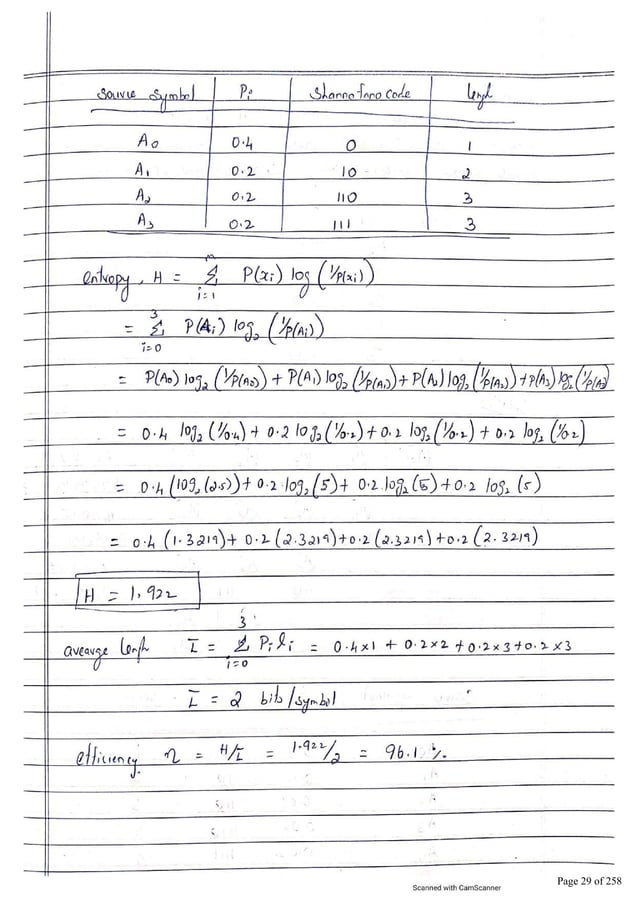 Source Symbol Pi Shanno fano code length
A0 0.4 0 1
A1 0.2 10 2
A2 0.2 110 3
A3 0.2 111 3
entropy, H = n Σ i=1 P(xi) log (1/P(xi))
= 3 Σ i=0 P(Ai) log2 (1/P(Ai))
= P(A0) log2 (1/P(A0)) + P(A1) log2 (1/P(A1)) + P(A2) log2 (1/P(A2)) + P(A3) log2 (1/P(A3)
= 0.4 log2 (1/0.4) + 0.2 log2 (1/0.2) + 0.2 log2 (1/0.2) + 0.2 log2 (1/0.2)
= 0.4 (log2 (2.5)) + 0.2 log2 (5) + 0.2 log2 (5) + 0.2 log2 (5)
= 0.4 (1.3219) + 0.2 (2.3219) + 0.2 (2.3219) + 0.2 (2.3219)
H = 1.922
avearge length L̅ = 3 Σ i=0 Pi li = 0.4×1 + 0.2×2 + 0.2×3 + 0.2×3
L̅ = 2 bits/symbol
efficiency. η = H/L̅ = 1.922/2 = 96.1%.
Scanned with CamScanner
Page 29 of 258